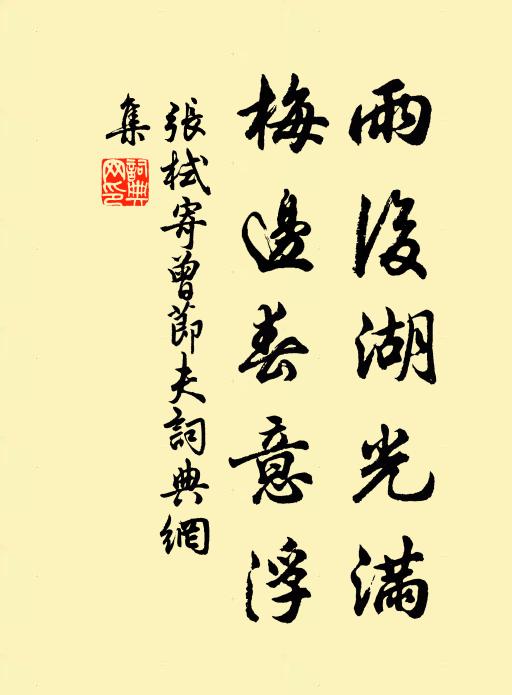 雨後湖光滿
梅邊春意浮
張栻寄曾節夫詞典網
集
詞典
网印